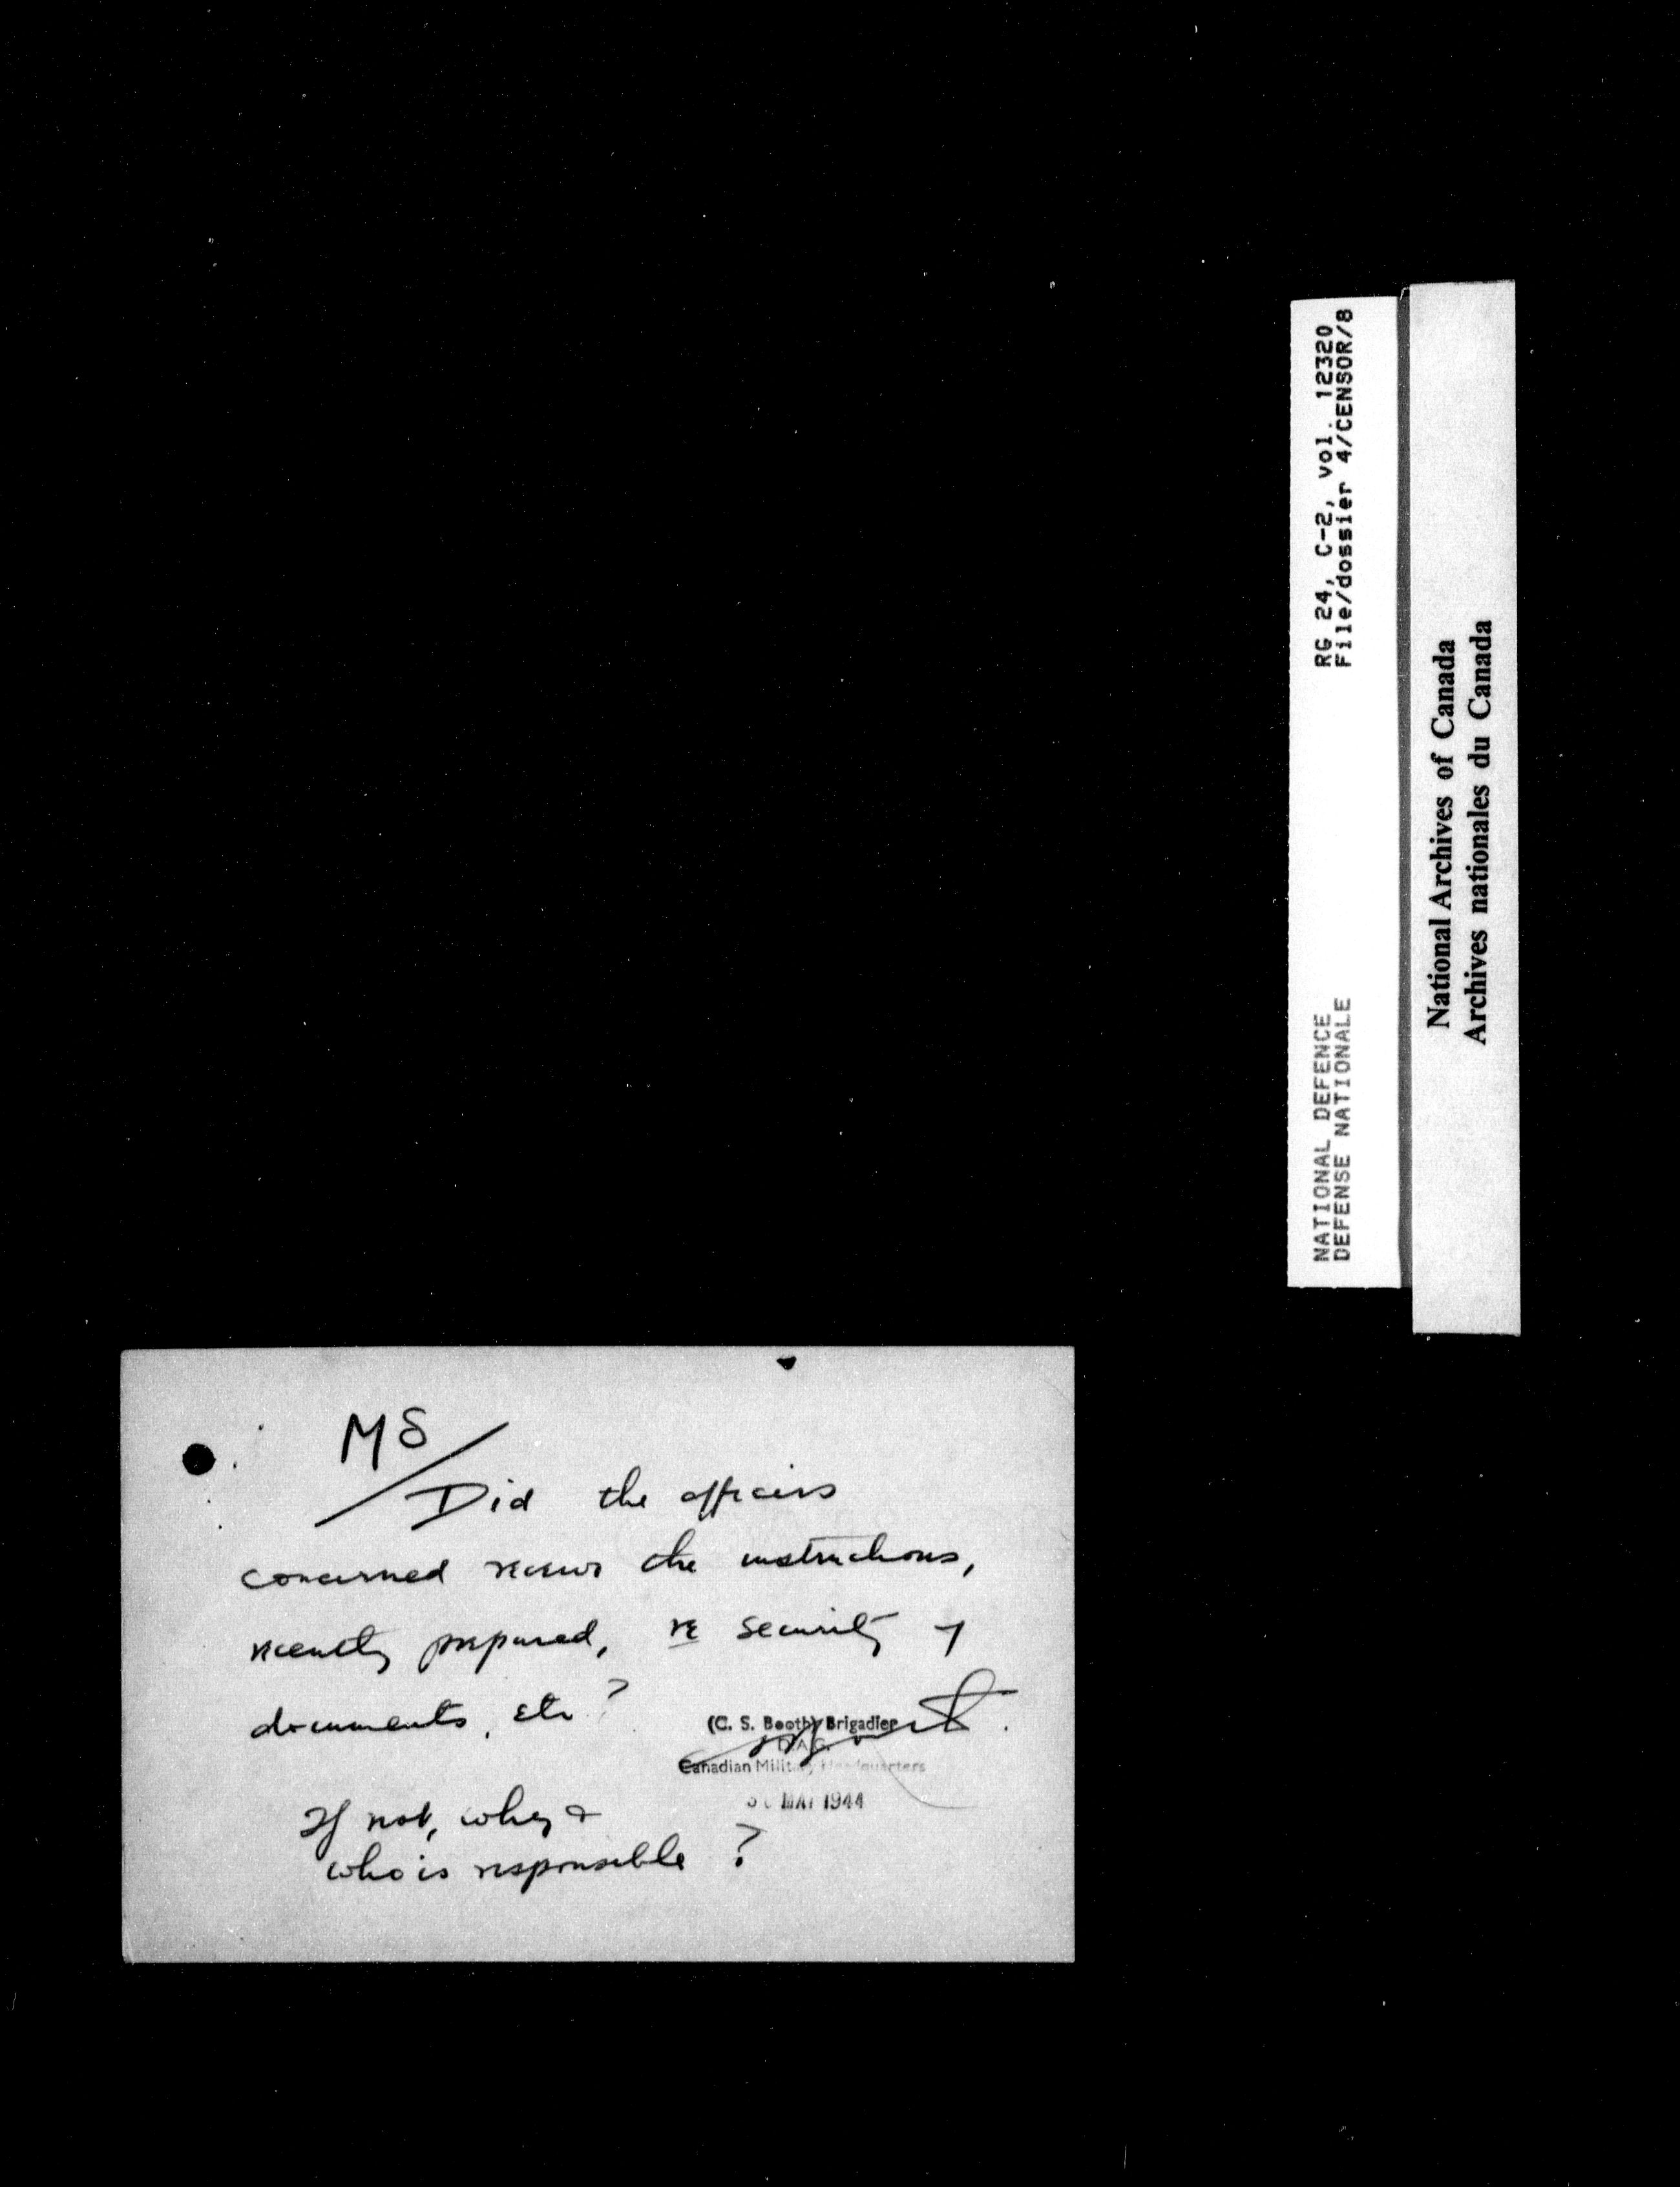 RG 24, C-2, vol. 12320
File/dossier 4/CENSOR/8
NATIONAL DEFENCE
DEFENSE NATIONALE
National Archives of Canada
Archives nationales du Canada
MS
Did the officers
concerned receive the instructions,
recently prepared, re security of
documents, etc?
(C. S. Booth) Brigadier
D.A.G.
Canadian Military Headquarters
MAY 1944
If not, why &
who is responsible ?